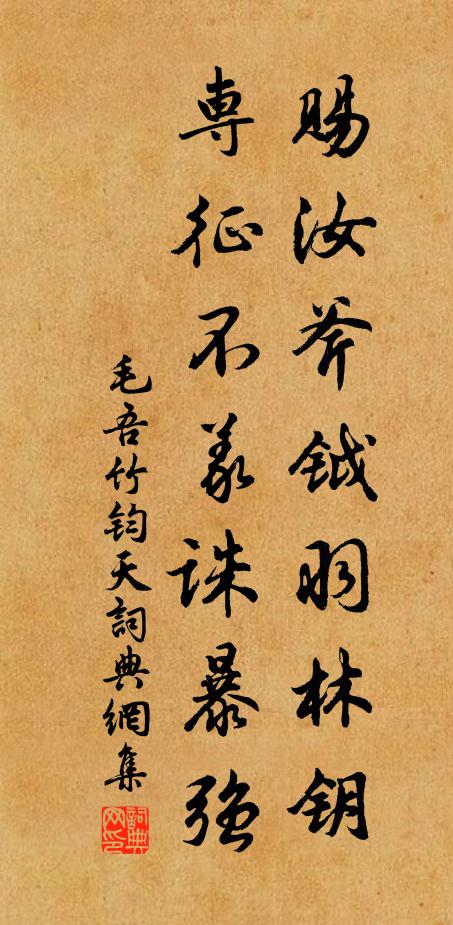 賜汝斧鉞羽林鑰
專征不義誅暴強
毛吾竹鈞天詞典網集
詞典网印